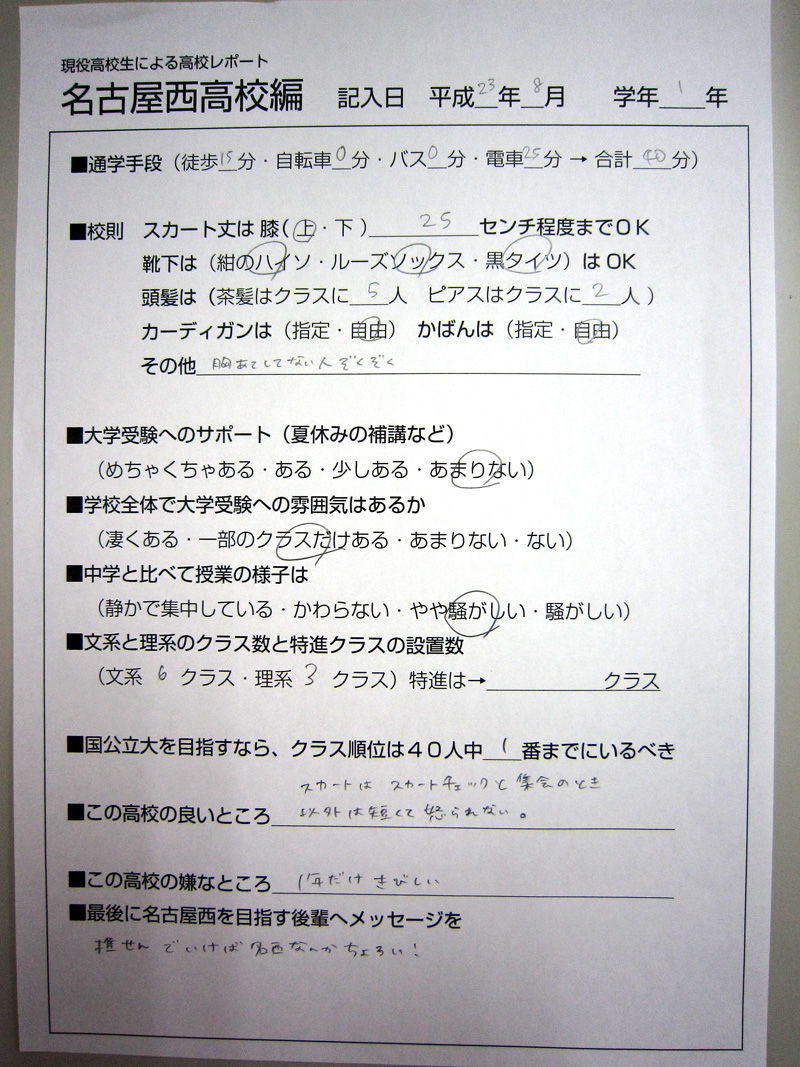 現役高校生による高校レポート
名古屋西高校編　記入日　平成23年8月　学年1年
■通学手段（徒歩15分・自転車0分・バス0分・電車25分→合計40分）
■校則　スカート丈は膝（上・下）25センチ程度までＯＫ
靴下は（紺のハイソ・ルーズソックス・黒タイツ）はOK
頭髪は（茶髪はクラスに5人　ピアスはクラスに2人）
カーディガンは（指定・自由）　かばんは（指定・自由）
その他 胸あてしてない人ぞくぞく
■大学受験へのサポート（夏休みの補講など）
（めちゃくちゃある・ある・少しある・あまりない）
■学校全体で大学受験への雰囲気はあるか
（凄くある・一部のクラスだけある・あまりない・ない）
■中学と比べて授業の様子は
（静かで集中している・かわらない・やや騒がしい・騒がしい）
■文系と理系のクラス数と特進クラスの設置数
（文系 6 クラス・理系 3 クラス）特進は→　クラス
■国公立大を目指すなら、クラス順位は４０人中1番までにいるべき
スカートは スカートチェックと集会のとき
■この高校の良いところ 以外は短くて怒られない。
■この高校の嫌なところ 1年だけ きびしい
■最後に名古屋西を目指す後輩へメッセージを
推せんでいけば名西なんかちょろい！